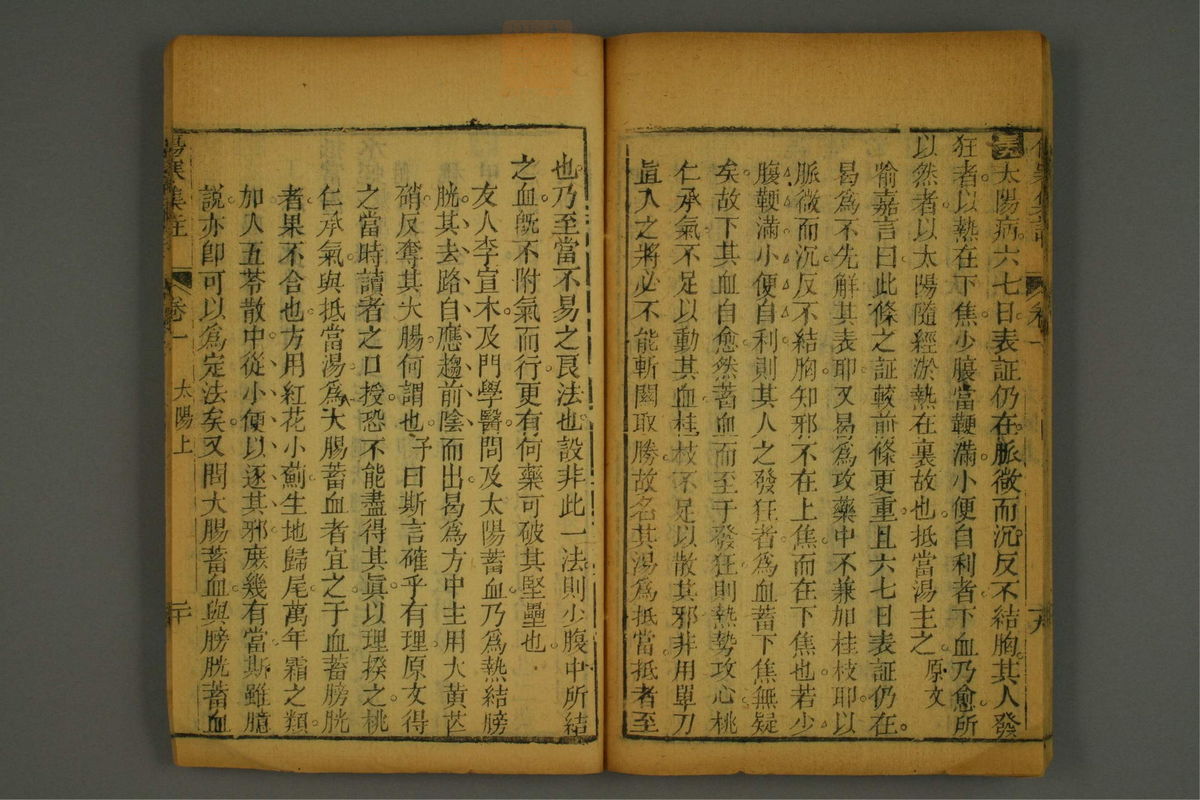 太陽病六七日表証仍在脈微而沉反不結胸其人發
狂者以熱在下焦少腹當鞕滿小便自利者下血乃愈所
以然者以太陽隨經淤熱在裏故也抵當湯主之 原文
喻嘉言曰此條之証較前條更重且六七日表証仍在
曷為不先解其表耶又曷為攻藥中不兼加桂枝耶以
脈微而沉反不結胸知邪不在上焦而在下焦也若少
腹鞕滿小便自利則其人之發狂者為血蓄下焦無疑
矣故下其血自愈然蓄血而至于發狂則熱勢攻心桃
仁承氣不足以動其血桂枝不足以散其邪非用單刀
直入之將必不能斬關取勝故名其湯為抵當抵者至
傷寒集註
卷一
十九
也乃至當不易之良法也設非此一法則少腹中所結
之血旣不附氣而行更有何藥可破其堅壘也
友人李宣木及門學醫問及太陽蓄血乃為熱結膀
胱其去路自應趨前陰而出曷為方中主用大黃芒
硝反奪其大腸何謂也予曰斯言確乎有理原文得
之當時讀者之口授恐不能盡得其眞以理揆之桃
仁承氣與抵當湯為大腸蓄血者宜之于血蓄膀胱
者果不合也方用紅花小薊生地歸尾萬年霜之類
加入五苓散中從小便以逐其邪庶幾有當斯雖臆
說亦卽可以為定法矣又問大腸蓄血與膀胱蓄血
傷寒集註
卷一
太陽上
二十